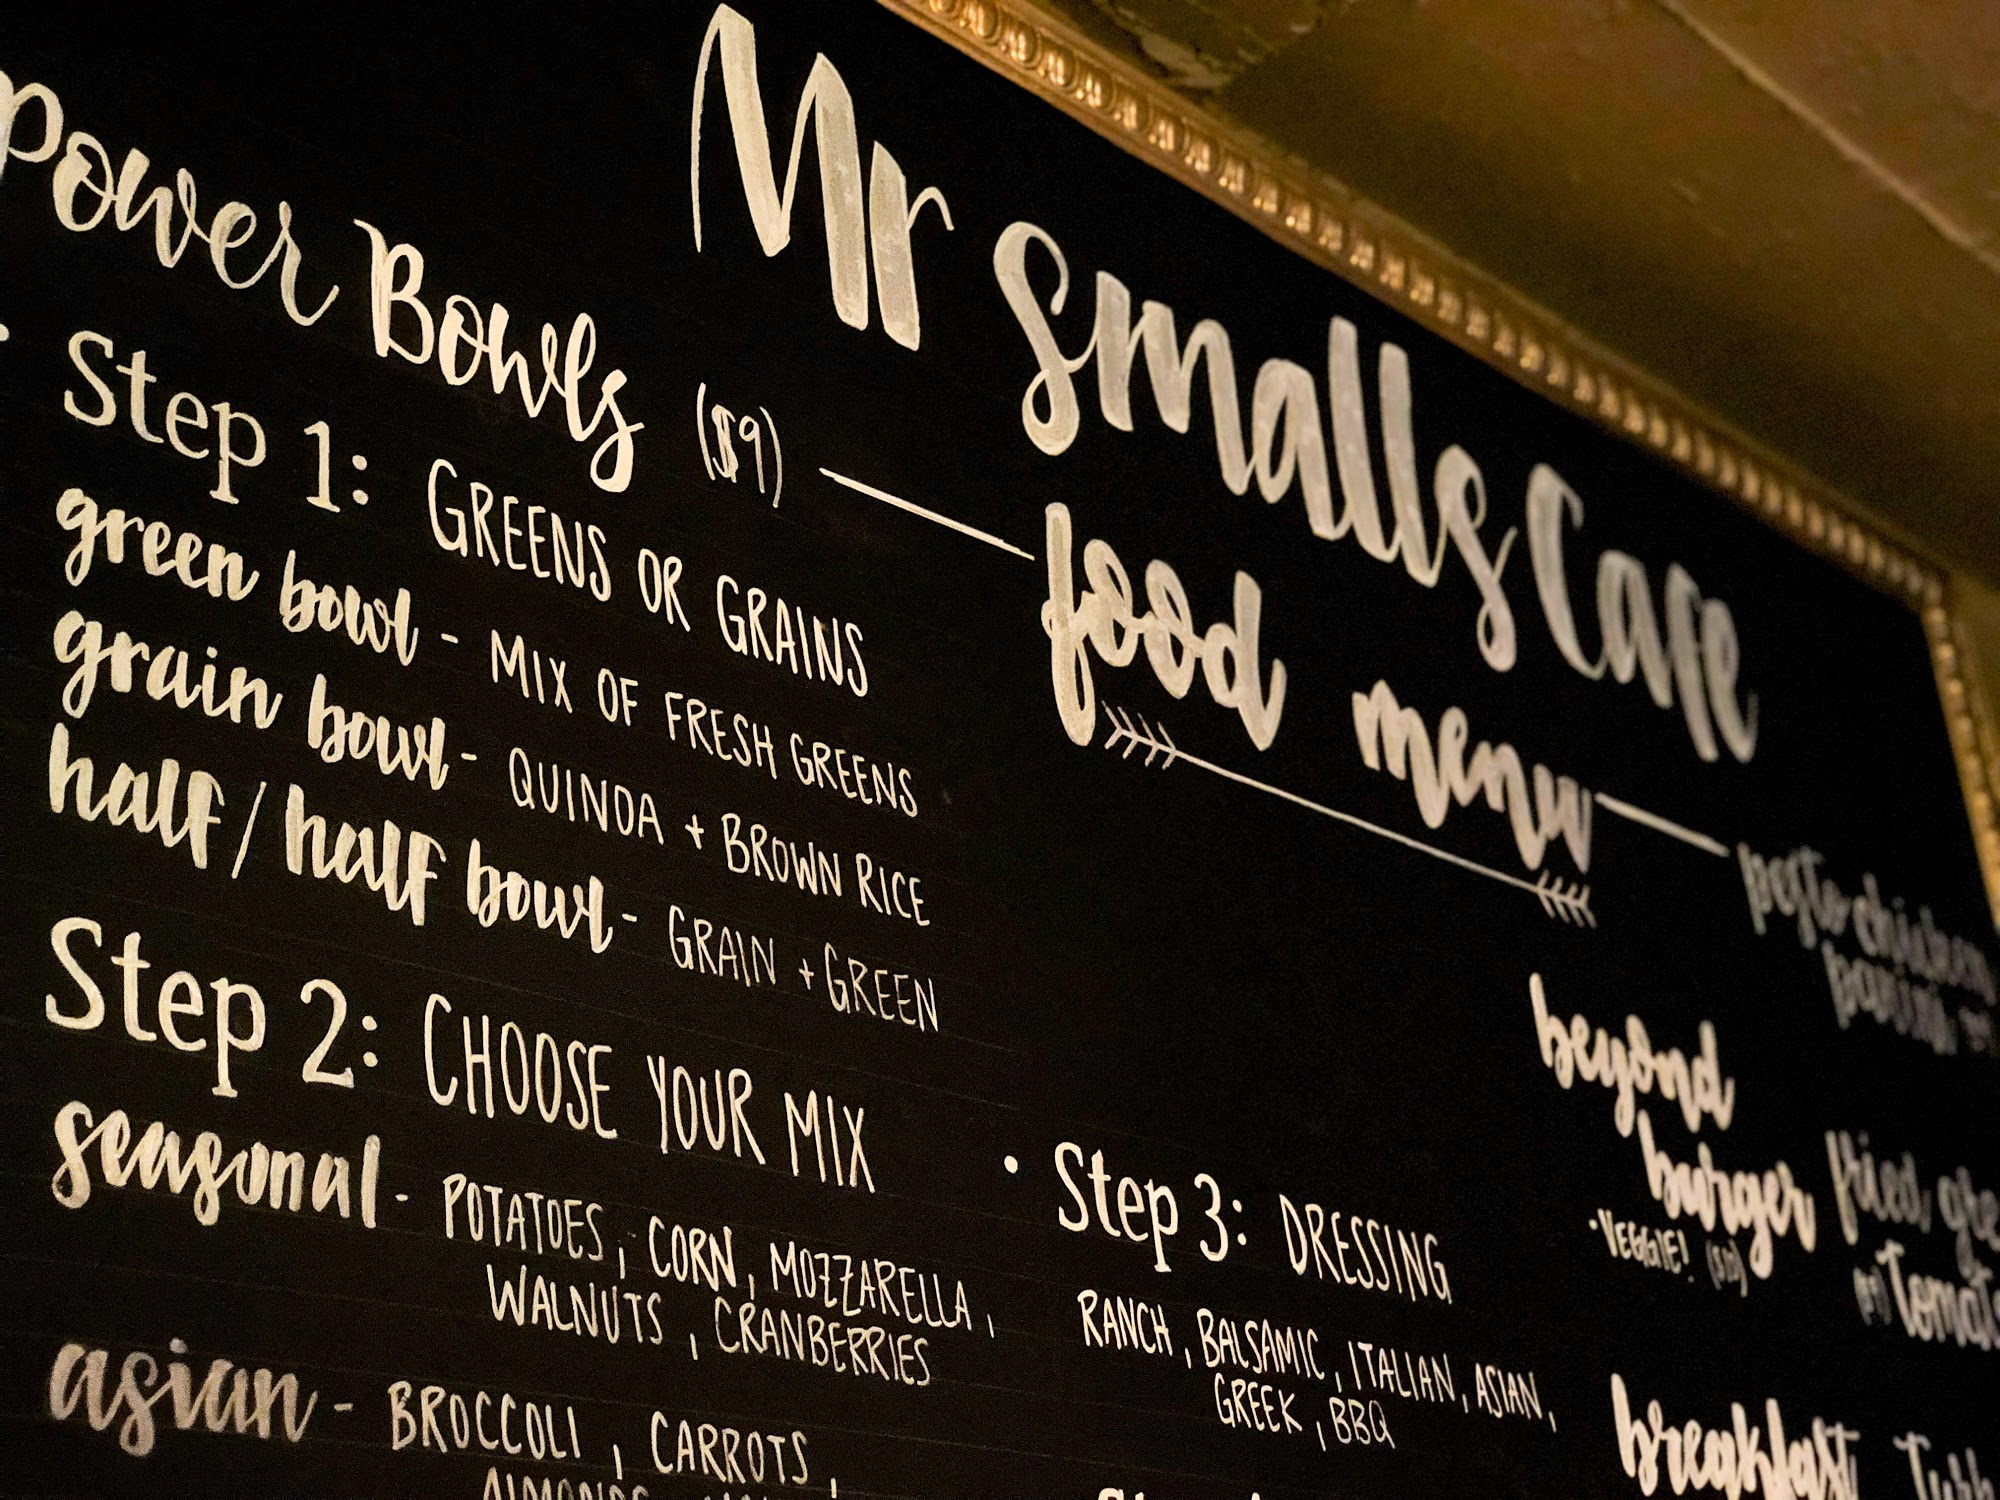 Mr Smalls Cafe
food menu
Power Bowls ($9)
• Step 1: GREENS OR GRAINS
green bowl - MIX OF FRESH GREENS
grain bowl - QUINOA + BROWN RICE
half/half bowl - GRAIN + GREEN
Step 2: CHOOSE YOUR MIX
seasonal - POTATOES, CORN, MOZZARELLA,
WALNUTS, CRANBERRIES
asian - BROCCOLI, CARROTS,
ALMONDS
• Step 3: DRESSING
RANCH, BALSAMIC, ITALIAN, ASIAN,
GREEK, BBQ
pesto chicken
beyond
burger
• VEGGIE!
fried
breakfast